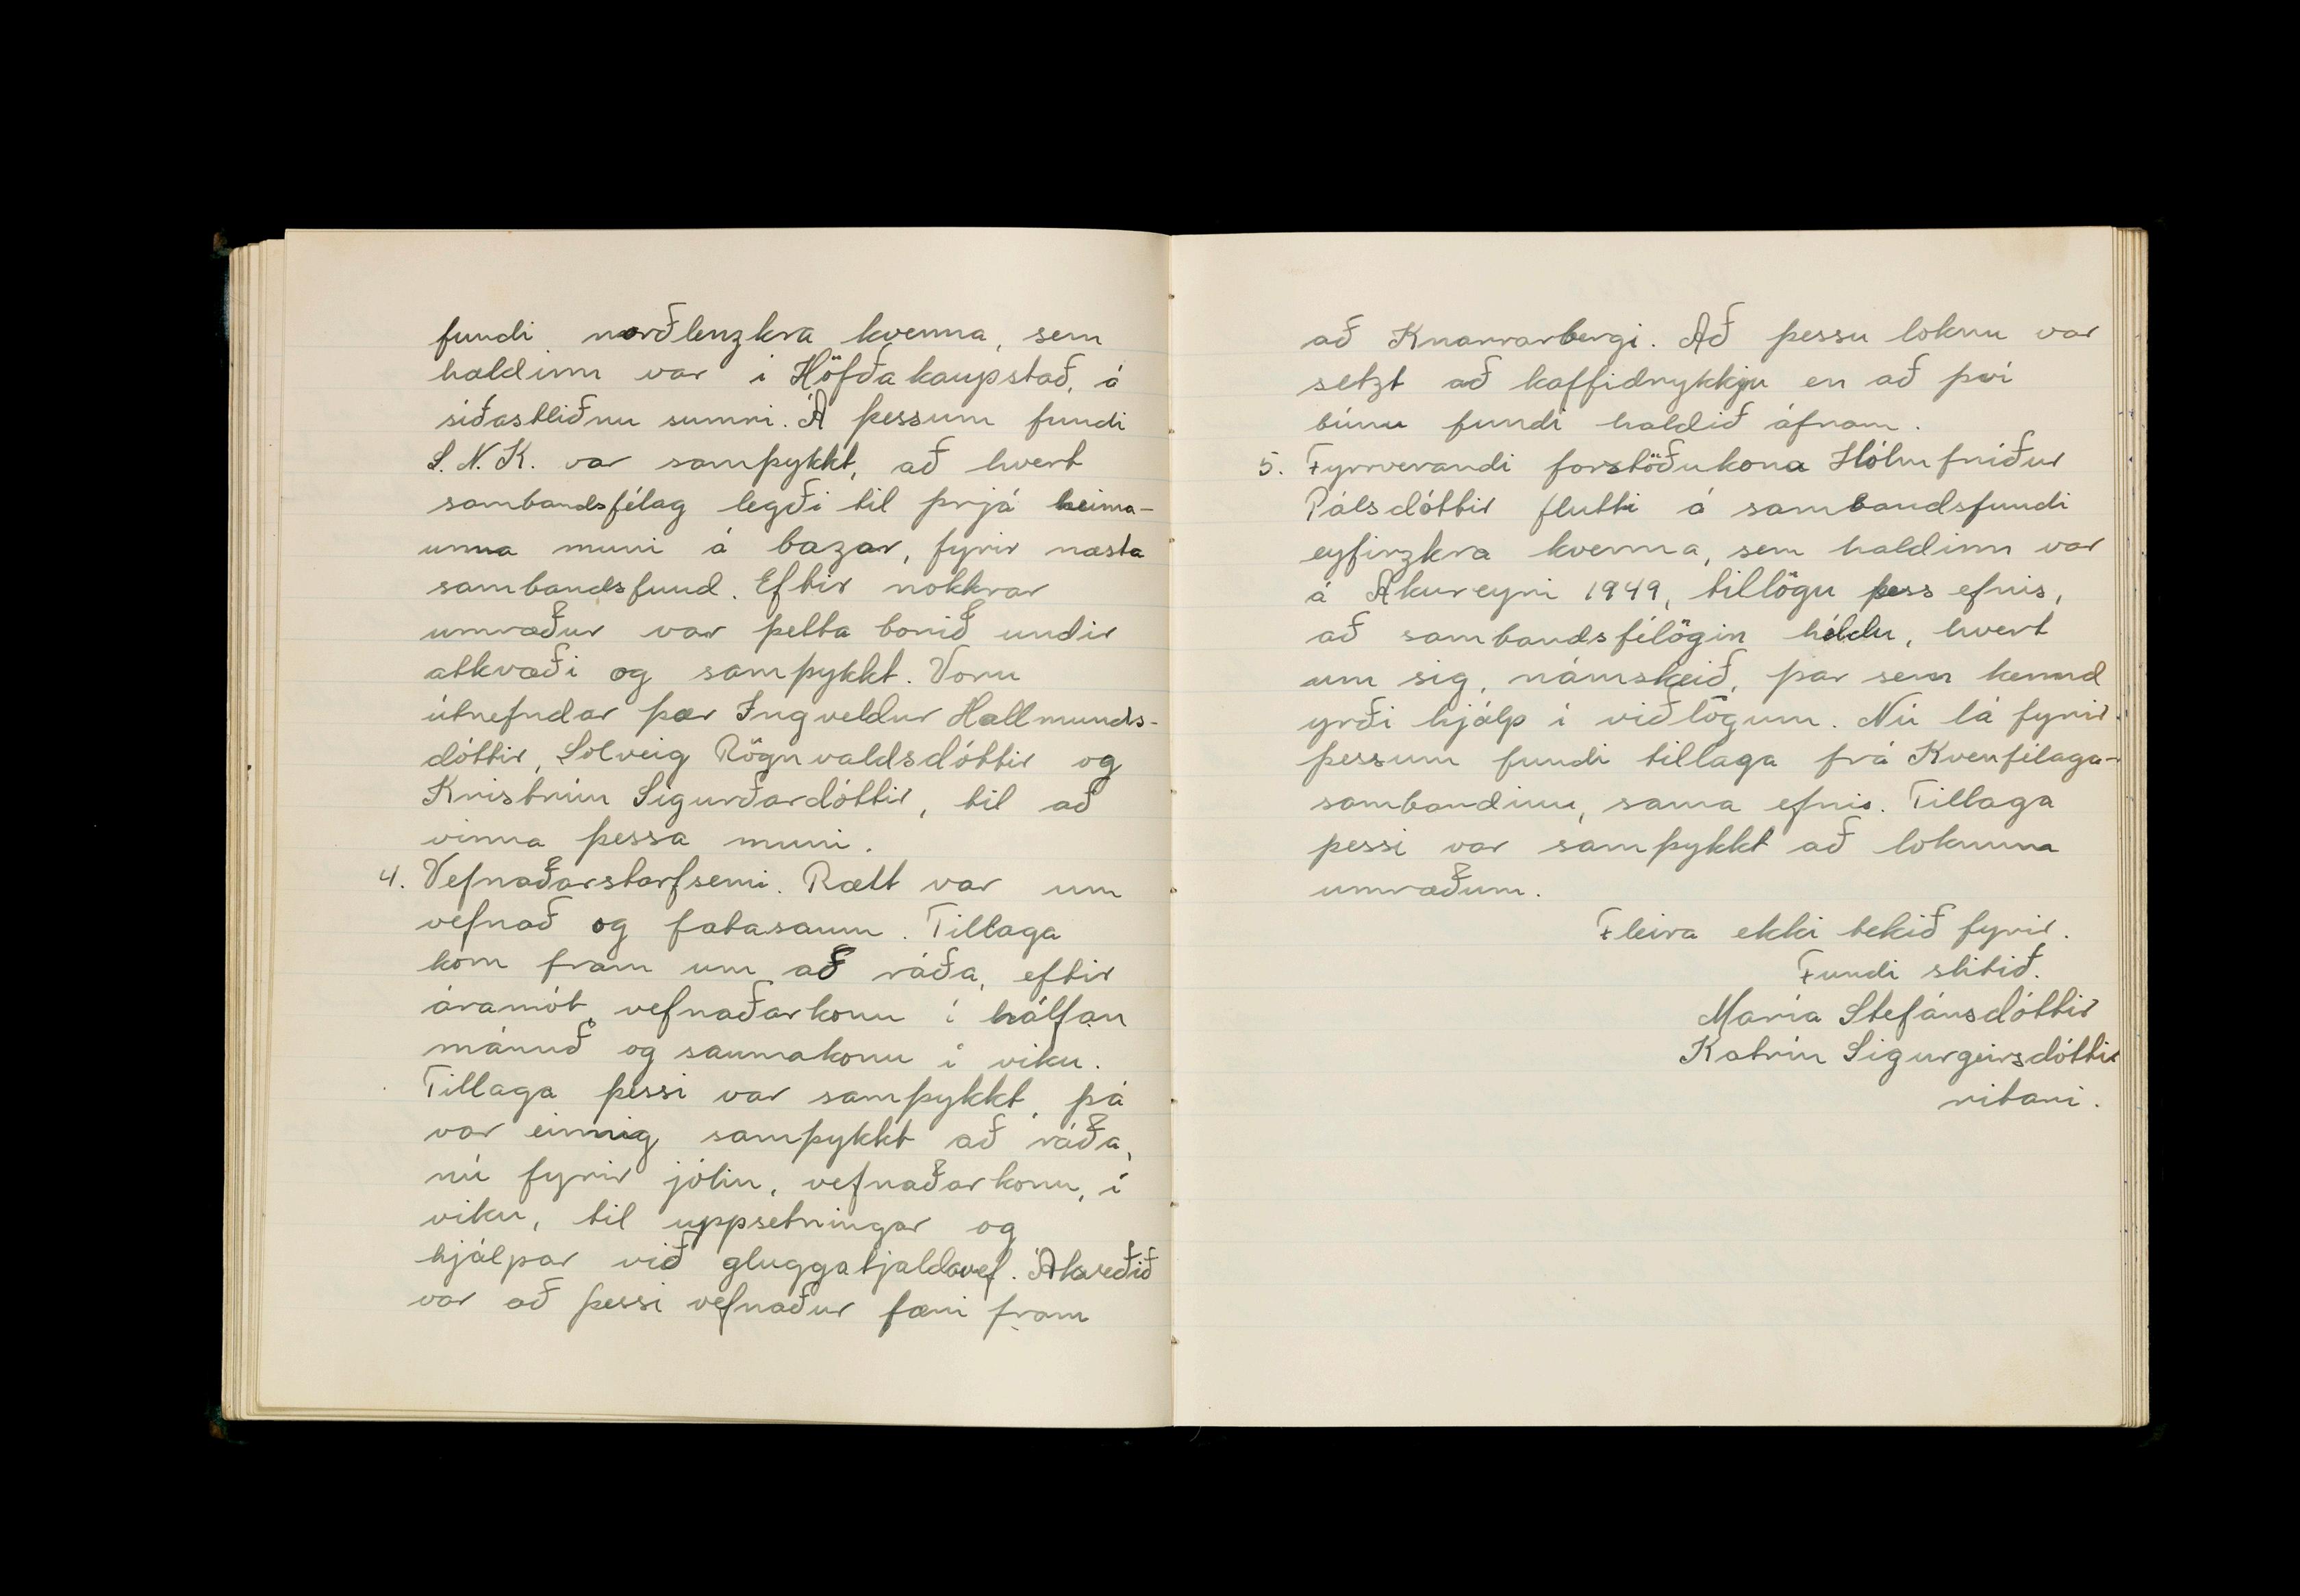 fundi norðlenzkra kvenna, sem
haldinn var í Höfðakaupstað, á
síðastliðnu sumri. Á þessum fundi
S.N.K. var samþykkt, að hvert
sambandsfélag legði til þrjá heima-
unna muni á bazar, fyrir næsta
sambandsfund. Eftir nokkrar
umræður var þetta borið undir
atkvæði og samþykkt. Voru
útnefndar þær Ingveldur Hallmunds-
dóttir, Solveig Rögnvaldsdóttir og
Kristrún Sigurðardóttir, til að
vinna þessa muni.
4. Vefnaðarstarfsemi. Rætt var um
vefnað og fatasaum. Tillaga
kom fram um að ráða, eftir
áramót, vefnaðarkonu í hálfan
mánuð og saumakonu í viku.
Tillaga þessi var samþykkt, þá
var einnig samþykkt að ráða,
nú fyrir jólin, vefnaðarkonu, í
viku, til uppsetningar og
hjálpar við gluggatjaldavef. Ákveðið
var að þessi vefnaður færi fram
að Knarrarbergi. Að þessu loknu var
setzt að kaffidrykkju en að því
búnu fundi haldið áfram.
5. Fyrrverandi forstöðukona Hólmfríður
Pálsdóttir flutti á sambandsfundi
eyfirzkra kvenna, sem haldinn var
á Akureyri 1949, tillögu þess efnis,
að sambandsfélögin héldu, hvert
um sig, námskeið, þar sem kennd
yrði hjálp í viðlögum. Nú lá fyrir
þessum fundi tillaga frá Kvenfélaga-
sambandinu, sama efnis. Tillaga
þessi var samþykkt að loknum
umræðum.
Fleira ekki tekið fyrir.
Fundi slitið.
María Stefánsdóttir
Katrín Sigurgeirsdóttir
ritari.